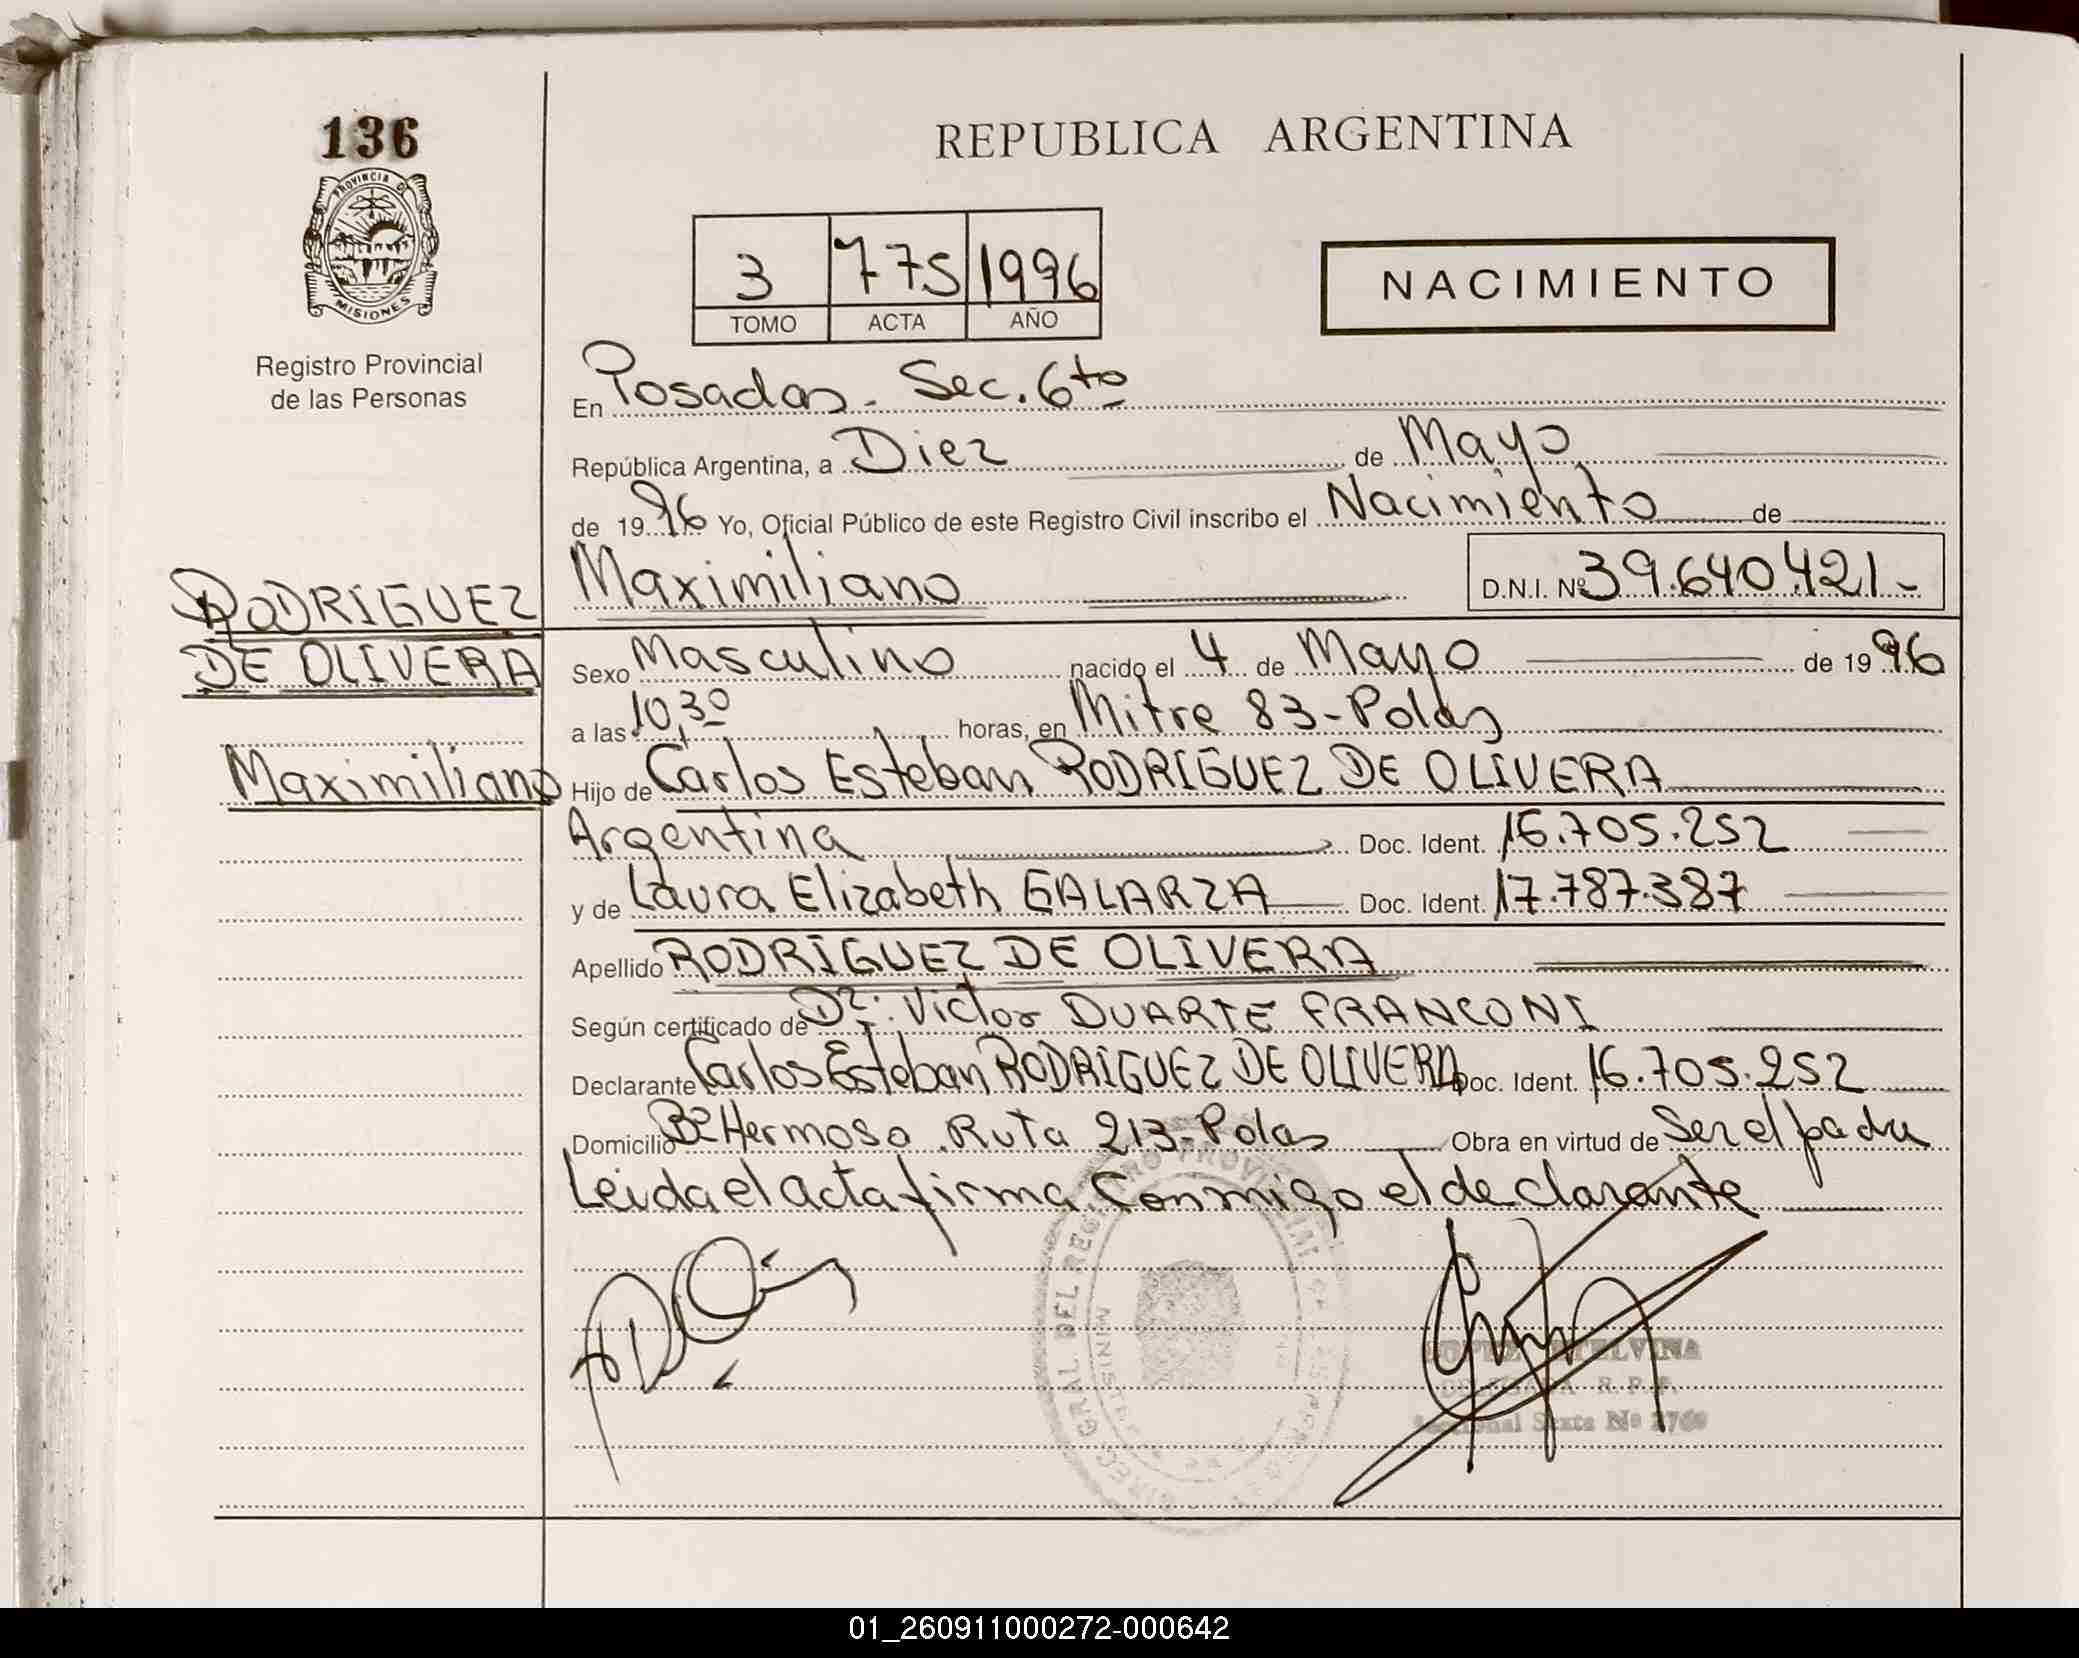 136
PROVINCIA DE
MISIONES
Registro Provincial
de las Personas
RODRIGUEZ
DE OLIVERA
Maximiliano
REPUBLICA ARGENTINA
3 775 1996
TOMO ACTA AÑO
NACIMIENTO
En Posadas. Sec. 6to
República Argentina, a Diez de Mayo
de 1996 Yo, Oficial Público de este Registro Civil inscribo el Nacimiento de
Maximiliano D.N.I. Nº 39.640.421-
Sexo Masculino nacido el 4 de Mayo de 1996
a las 10,30 horas, en Mitre 83-Pdas
Hijo de Carlos Esteban RODRIGUEZ DE OLIVERA
Argentina Doc. Ident. 16.705.252
y de Laura Elizabeth GALARZA Doc. Ident. 17.787.387
Apellido RODRIGUEZ DE OLIVERA
Según certificado de Dr. Victor DUARTE FRANCONI
Declarante Carlos Esteban RODRIGUEZ DE OLIVERA Doc. Ident. 16.705.252
Domicilio Bº Hermoso. Ruta 213-Pdas Obra en virtud de Ser el padre
Leida el acta firma conmigo el declarante
DIREC. GRAL. DEL REGISTRO PROVINCIAL
LOPEZ ETELVINA
DELEGADA R.P.P.
Seccional Sexta Nº 2760
01_260911000272-000642